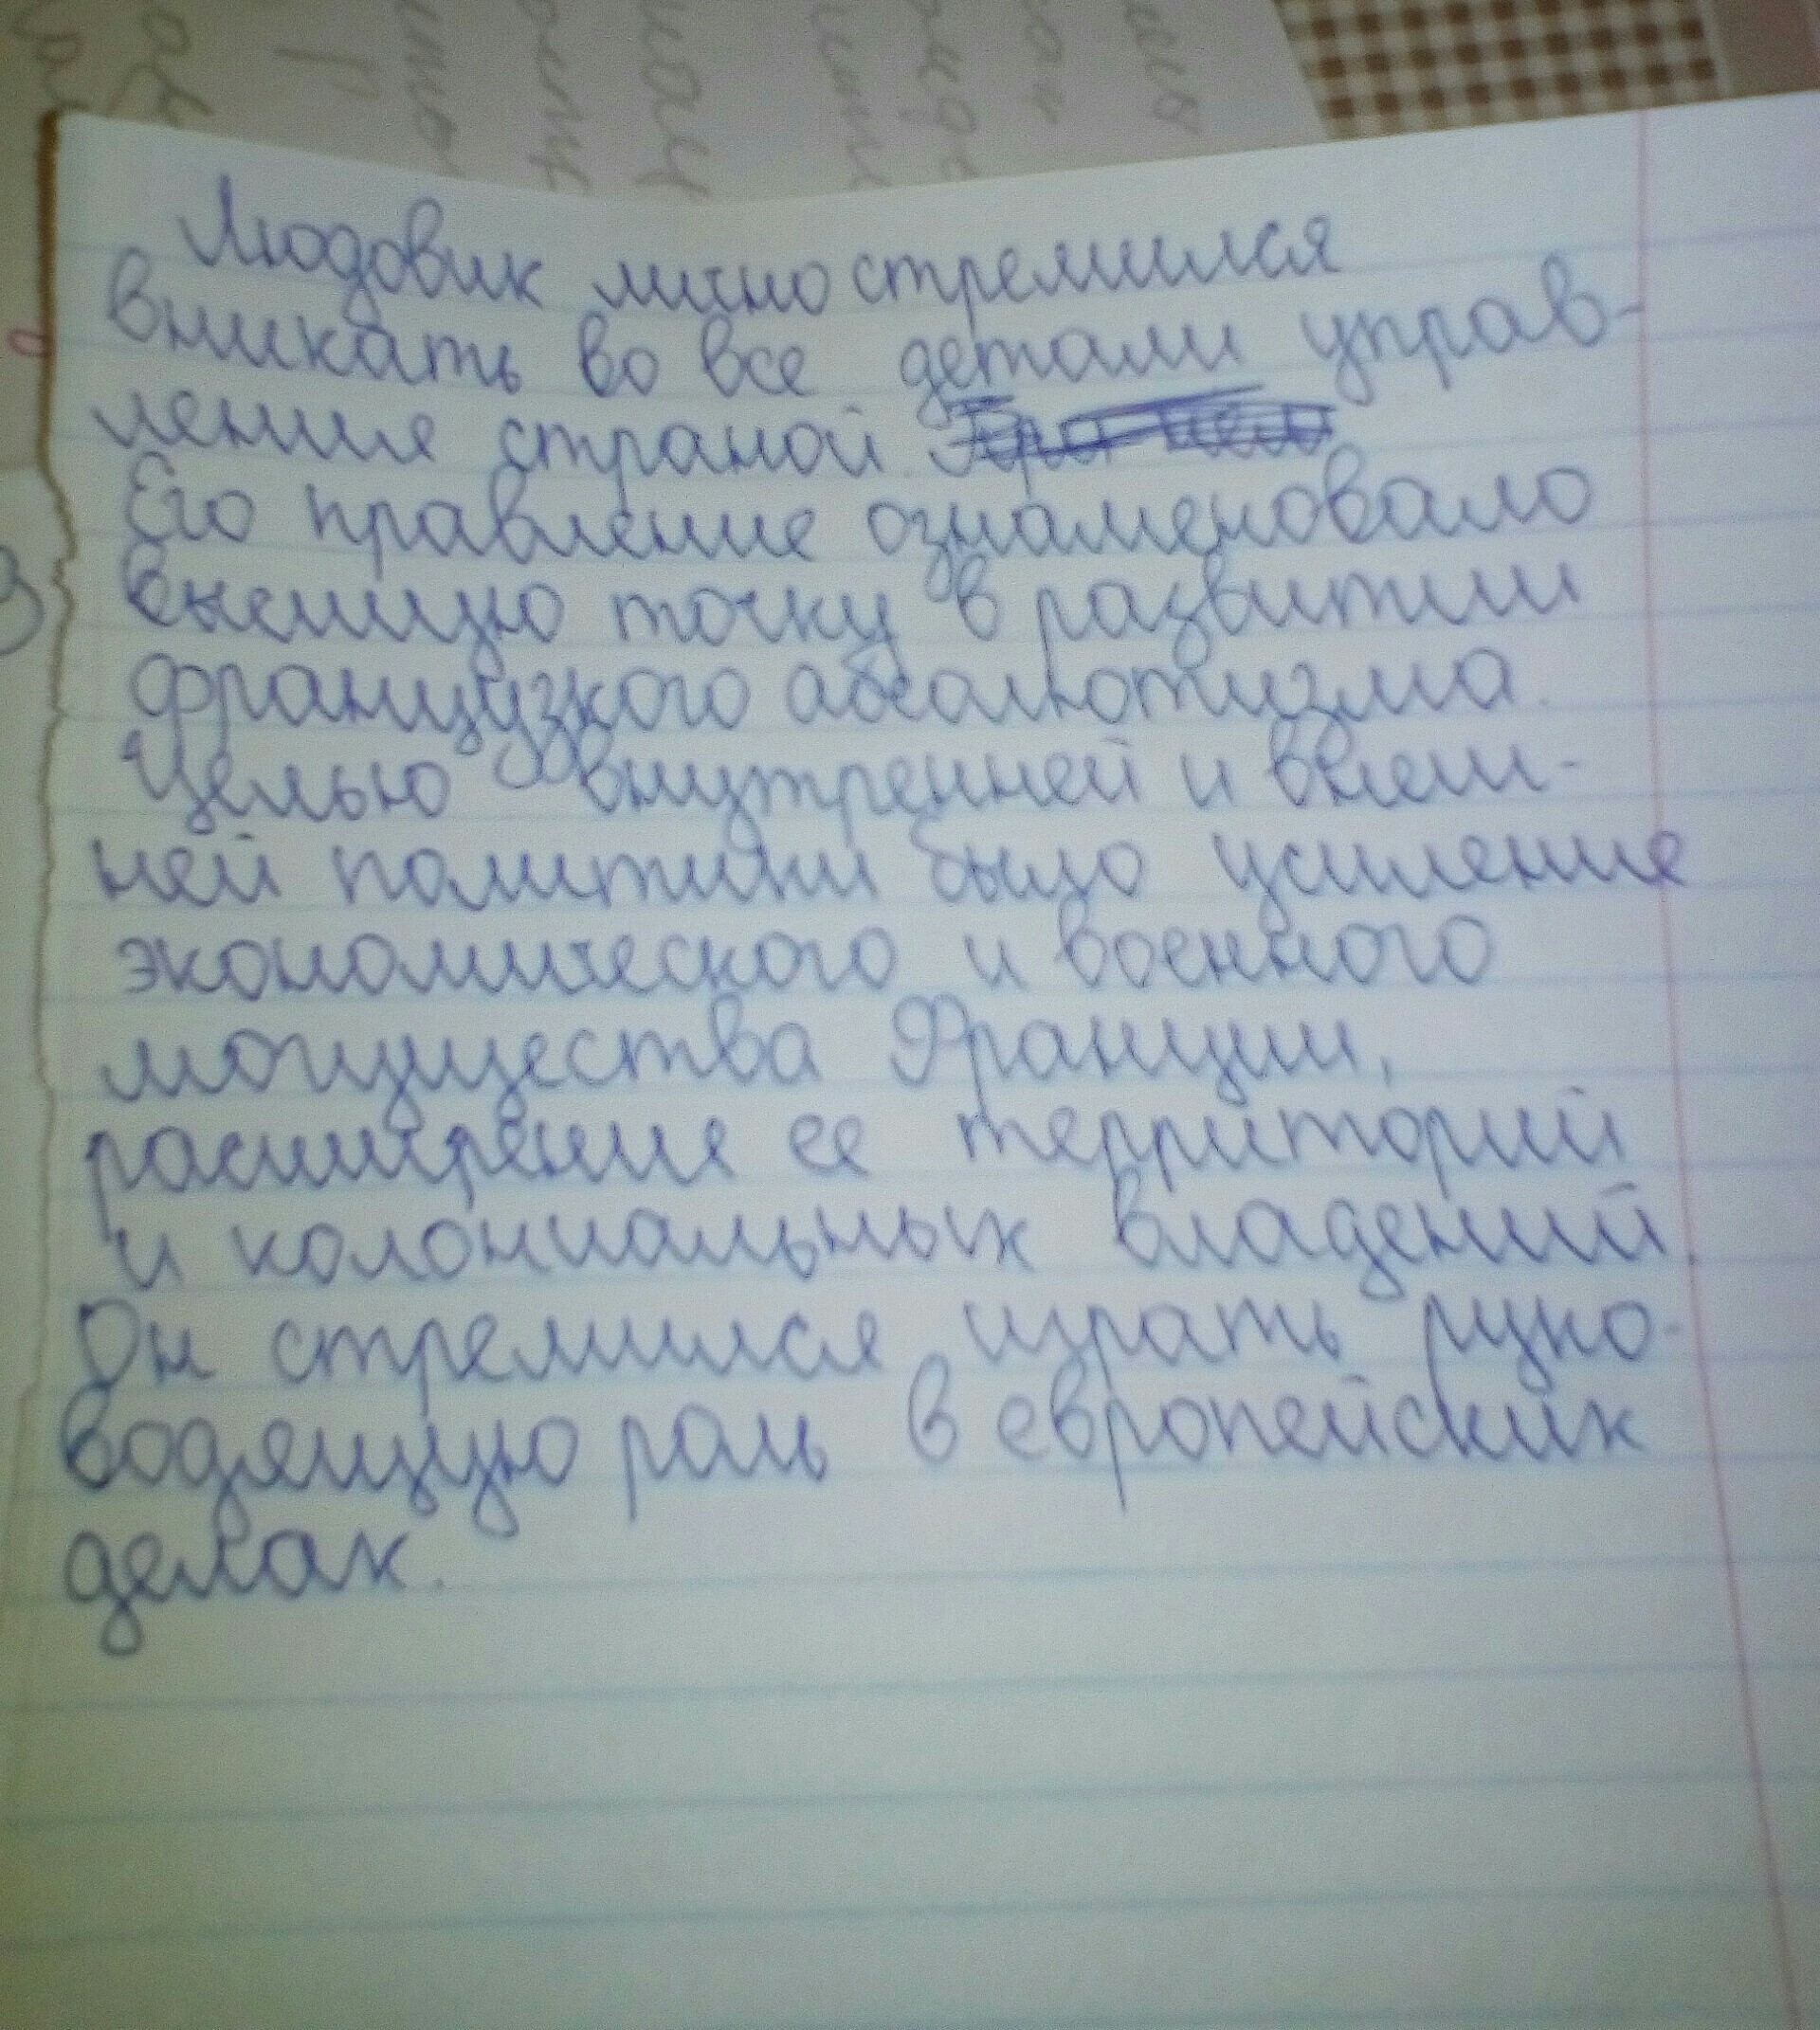 Людовик лично стремился
вникать во все детали управ-
ления страной.
Его правление ознаменовало
высшую точку в развитии
французкого абсолютизма.
Целью внутренней и внеш-
ней политики было усиление
экономического и военного
могущества Франции,
расширение ее территорий
и колониальных владений.
Он стремился играть руко-
водящую роль в европейских
делах.